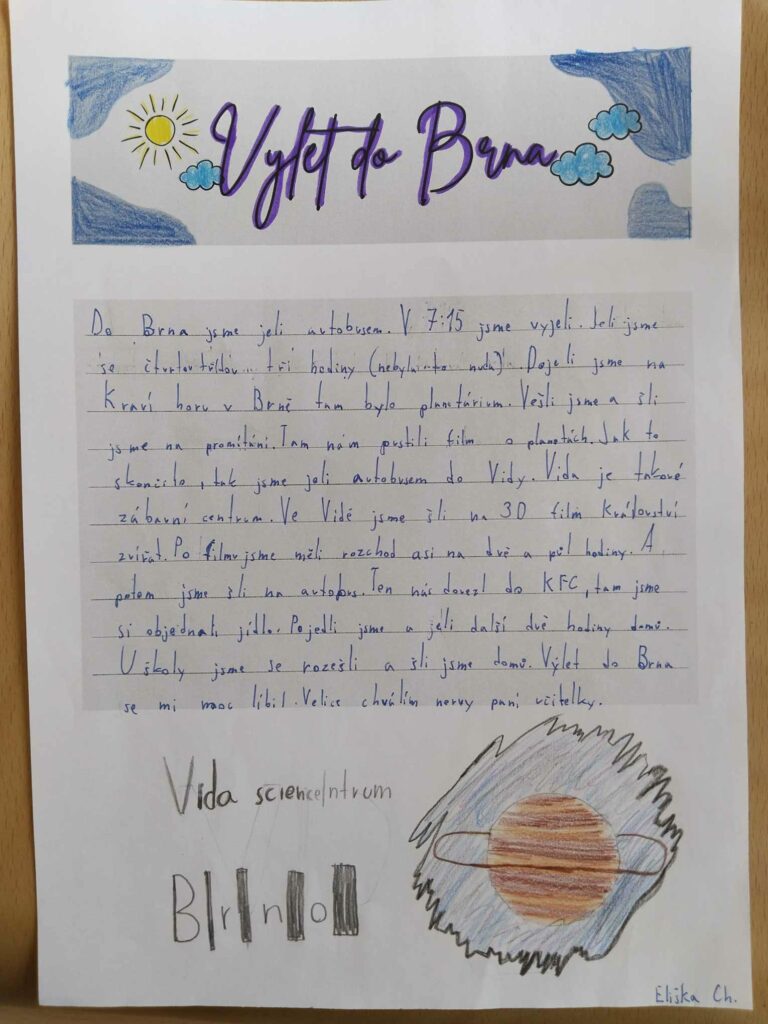 Výlet do Brna
Do Brna jsme jeli autobusem. V 7:15 jsme vyjeli. Jeli jsme
se čtvrtou třídou tři hodiny (nebyla to nuda). Dojeli jsme na
Kraví horu v Brně tam bylo planetárium. Vešli jsme a šli
jsme na promítání. Tam nám pustili film o planetách. Jak to
skončilo, tak jsme jeli autobusem do Vidy. Vida je takové
zábavní centrum. Ve Vidě jsme šli na 3D film Království
zvířat. Po filmu jsme měli rozchod asi na dvě a půl hodiny. A
potom jsme šli na autobus. Ten nás dovezl do KFC, tam jsme
si objednali jídlo. Pojedli jsme a jeli další dvě hodiny domů.
U školy jsme se rozešli a šli jsme domů. Výlet do Brna
se mi moc líbil. Velice chválím nervy paní učitelky.
Vida science|ntrum
B|r|n|o|
Eliška Ch.